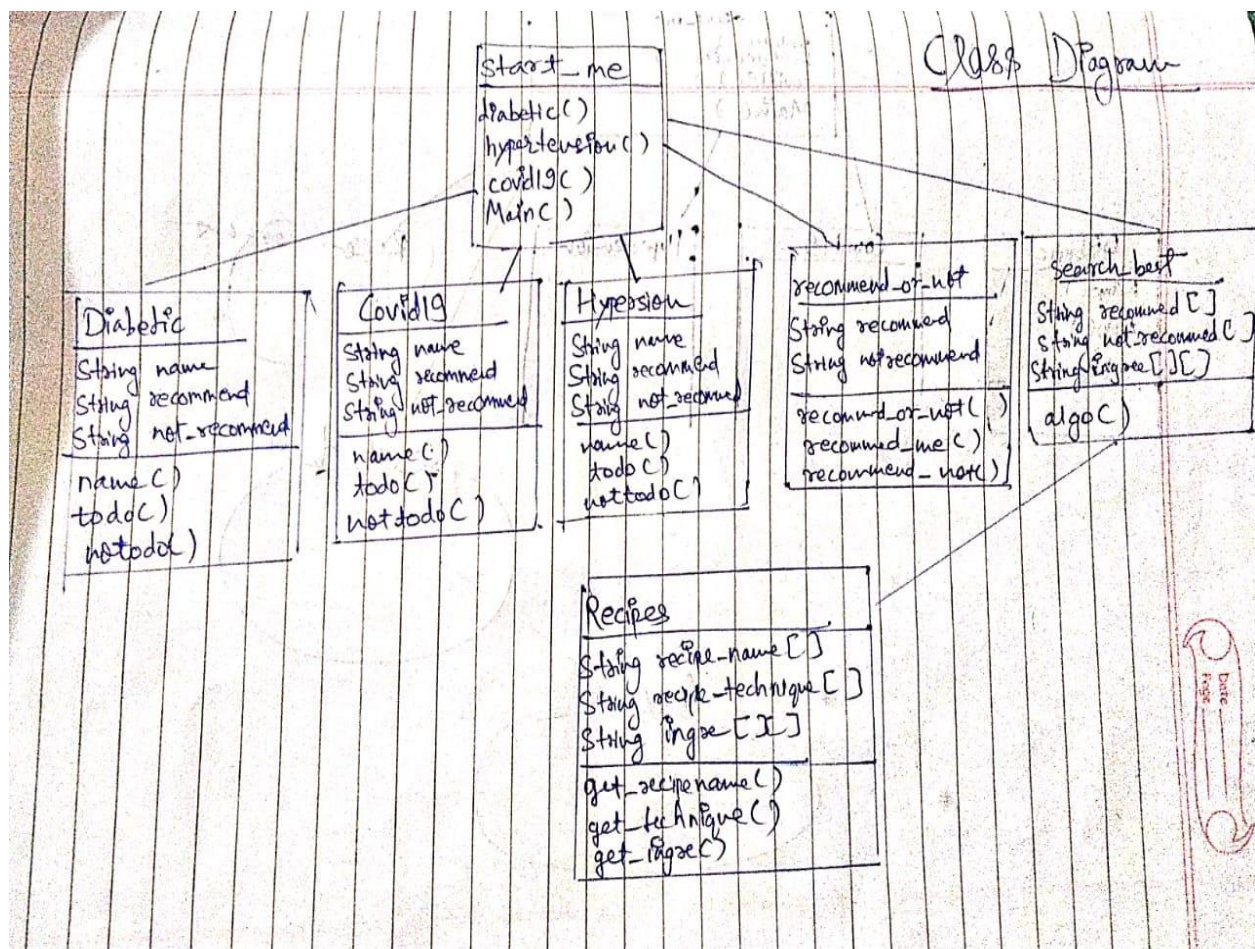 Class Diagram
Start_me
diabetic()
hypertension()
covid19()
Main()
Diabetic
String name
String recommend
String not_recommend
name()
todo()
notodo()
Covid19
String name
String recommend
String not_recommend
name()
todo()
nottodo()
Hypersion
String name
String recommend
String not_recommed
name()
todo()
nottodo()
recommend_or_not
String recommend
String notrecommend
recommend_or_not( )
recommed_me()
recommend_not()
Search_best
String recommed[]
String not_recommed[]
String ingree[][]
algo()
Recipes
String recipe_name[]
String recipe_technique[ ]
String ingre[][]
get_recipename()
get_technique()
get_ingre()
Date
Page